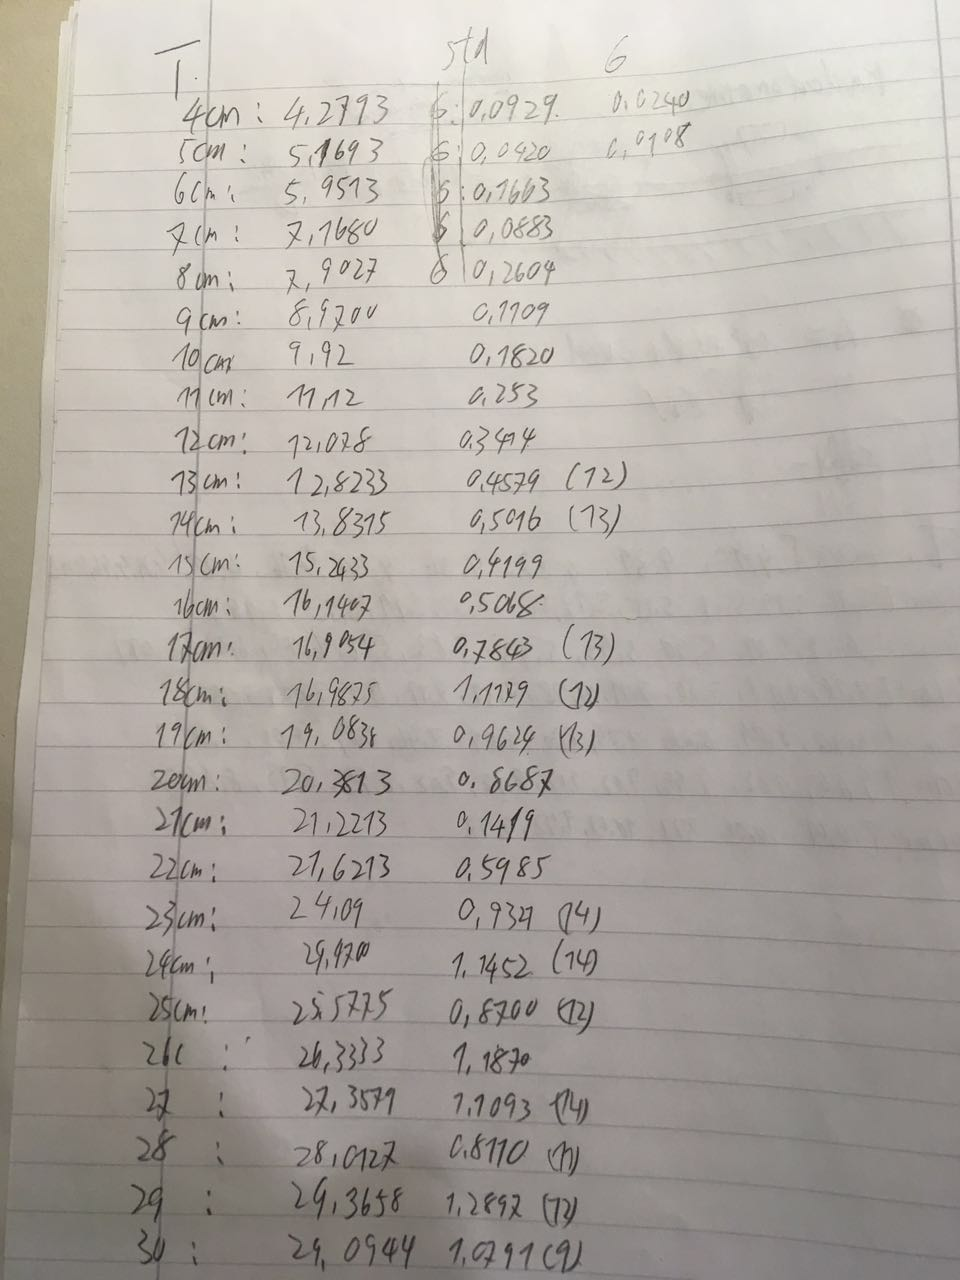 T. std 6
4cm: 4,2793 6: 0,0929. 0,0240
5cm: 5,1693 6: 0,0420 0,0108
6cm: 5,9513 6: 0,1663
7cm: 7,1680 6 0,0883
8cm: 7,9027 6 0,2604
9cm: 8,9700 0,1109
10cm 9,92 0,1820
11cm: 11,12 0,253
12cm: 12,078 0,3414
13cm: 12,8233 0,4579 (12)
14cm: 13,8315 0,5016 (13)
15cm: 15,2433 0,4199
16cm: 16,1407 0,5068
17cm: 16,9054 0,7843 (13)
18cm: 16,9875 1,1179 (12)
19cm: 19,0838 0,9624 (13)
20cm: 20,3813 0,8687
21cm: 21,2213 0,1419
22cm: 21,6213 0,5985
23cm: 24,09 0,9321 (14)
24cm: 1,1452 (14)
25cm: 25,5775 0,8700 (12)
26c : 26,3333 1,1870
27 : 27,3579 1,1093 (14)
28 : 28,0127 0,8110 (11)
29 : 29,3658 1,2897 (12)
30 : 29,0944 1,0791 (9)